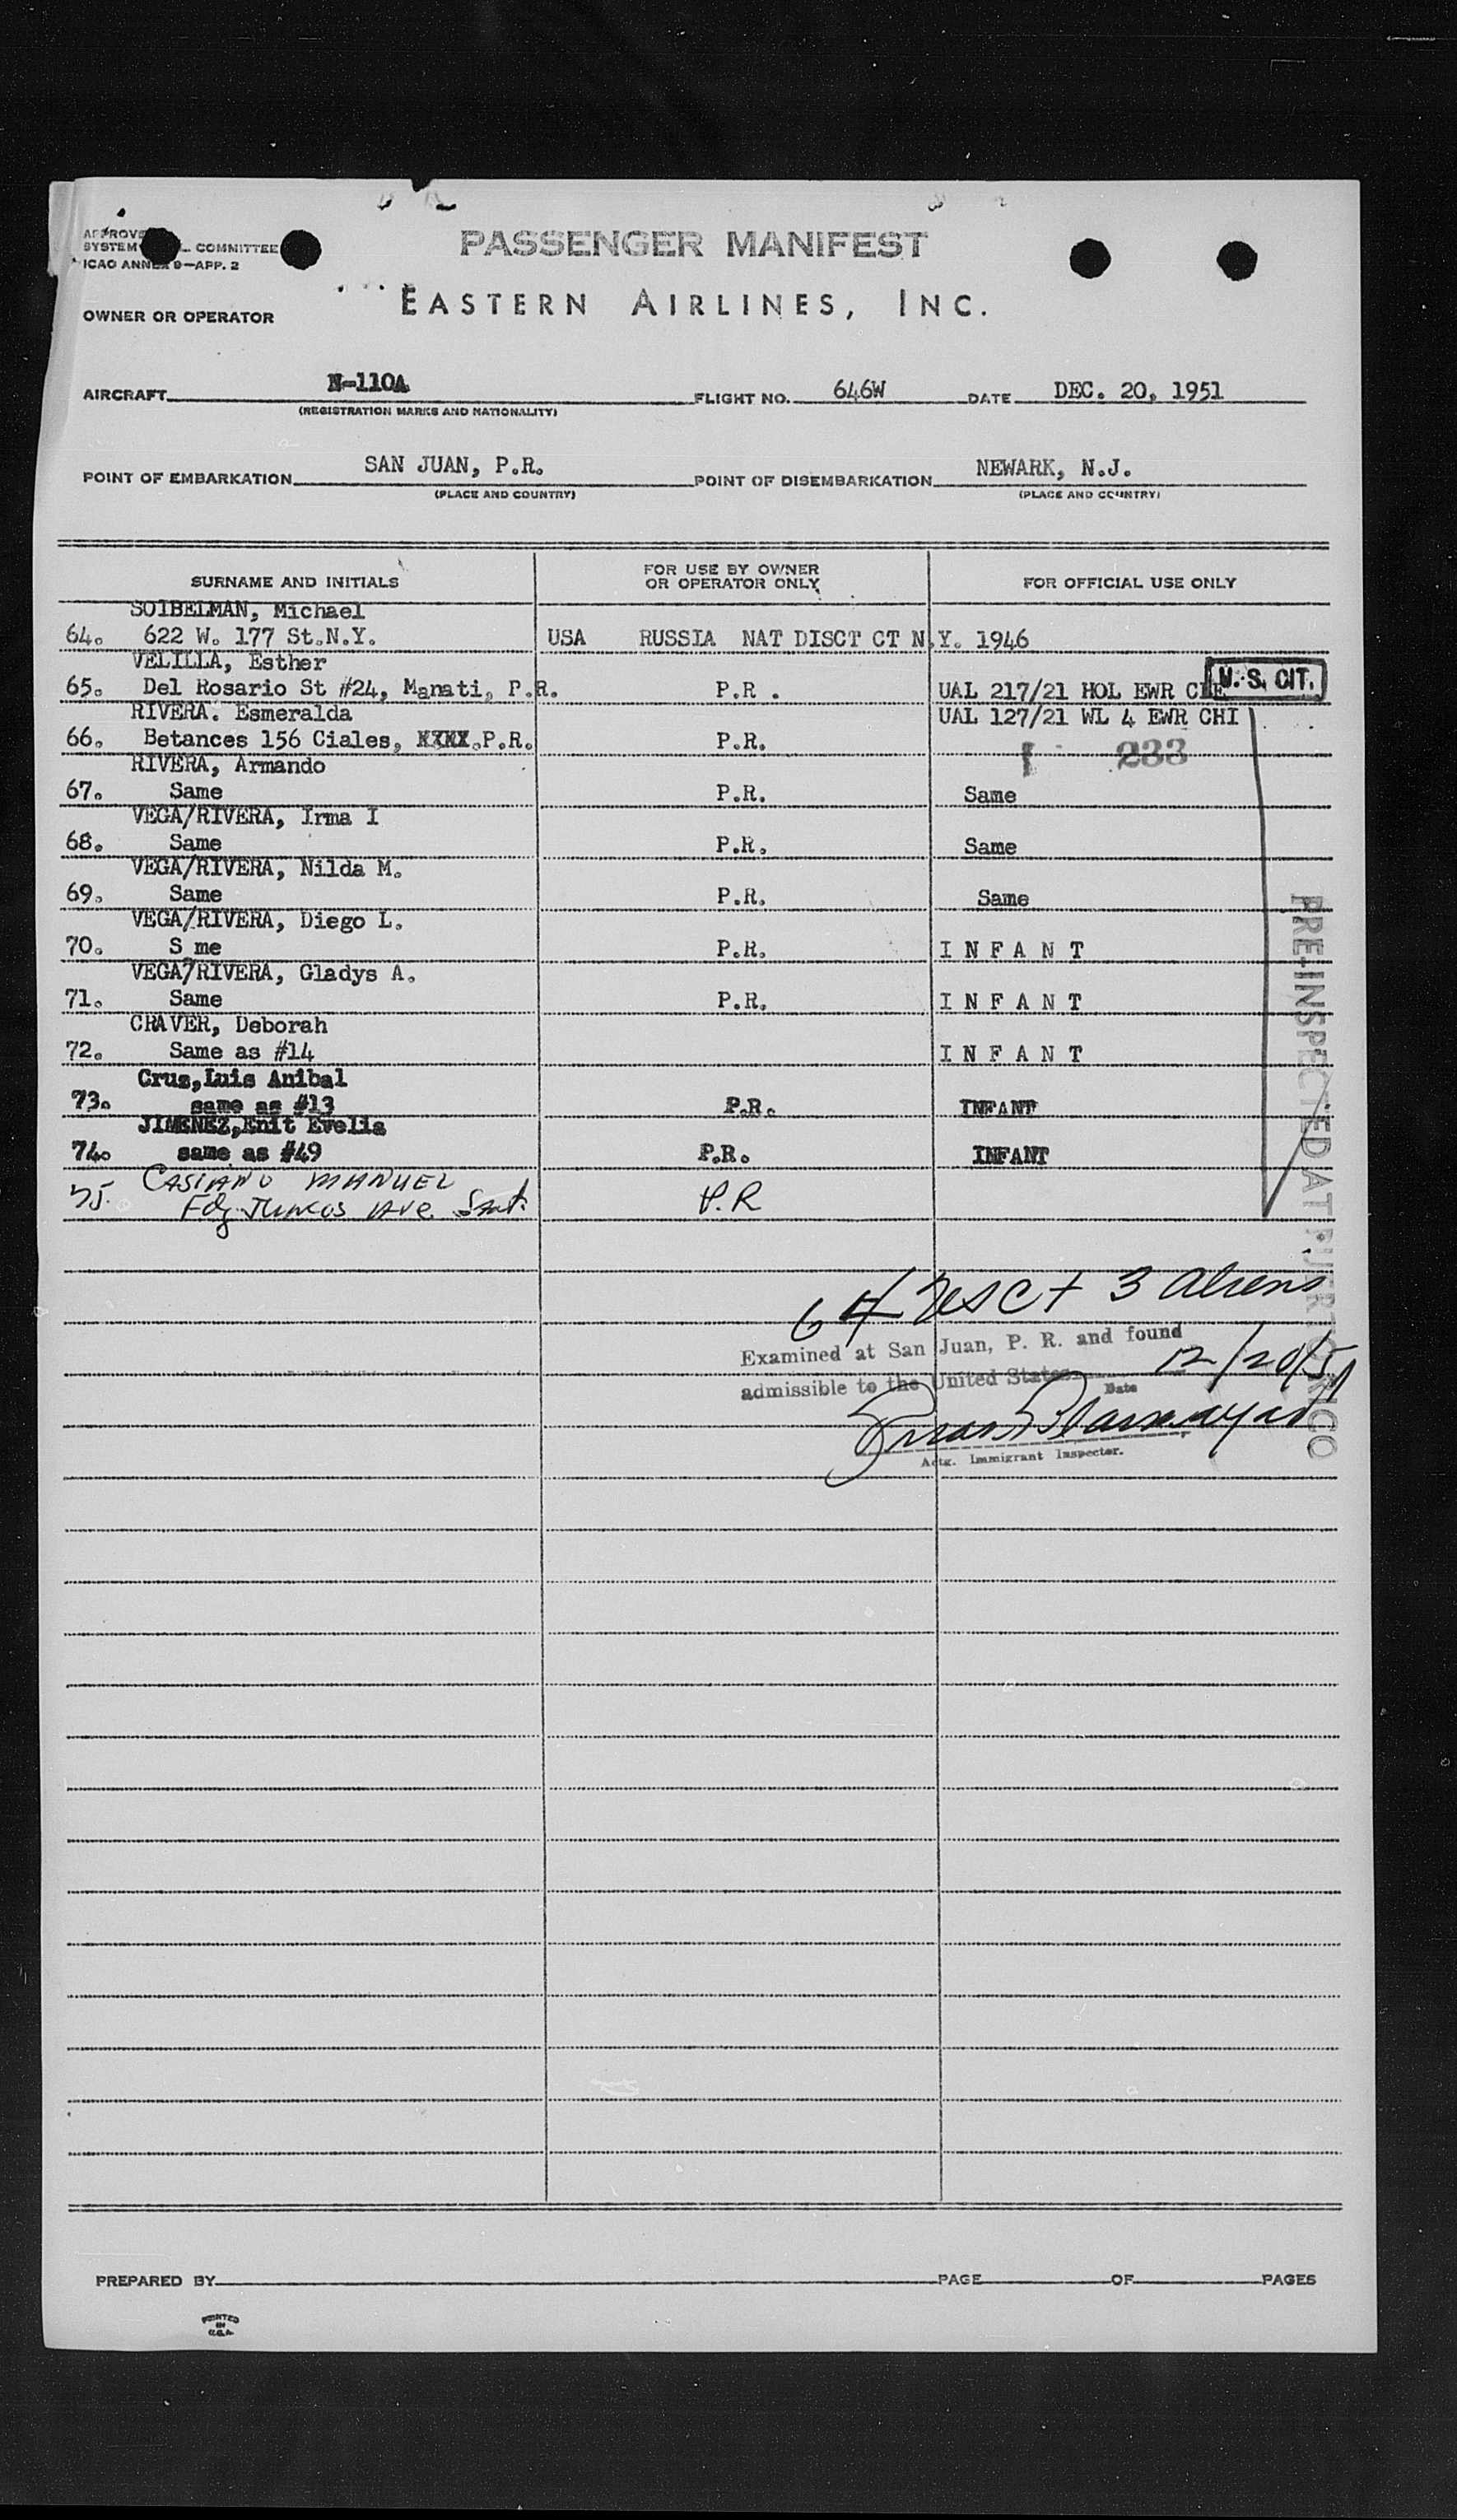 PASSENGER MANIFEST
SYSTEM COMMITTEE
ICAO ANNEX 9—APP. 2
EASTERN AIRLINES, INC.
OWNER OR OPERATOR
AIRCRAFT N-110A FLIGHT NO. 646W DATE DEC. 20, 1951
(REGISTRATION MARKS AND NATIONALITY)
POINT OF EMBARKATION SAN JUAN, P.R. POINT OF DISEMBARKATION NEWARK, N.J.
(PLACE AND COUNTRY) (PLACE AND COUNTRY)
SURNAME AND INITIALS FOR USE BY OWNER OR OPERATOR ONLY FOR OFFICIAL USE ONLY
SOIBELMAN, Michael
64. 622 W. 177 St.N.Y. USA RUSSIA NAT DISCT CT N.Y. 1946
VELILLA, Esther
U.S. CIT.
65. Del Rosario St #24, Manati, P.R. P.R . UAL 217/21 HOL EWR CLE
RIVERA. Esmeralda UAL 127/21 WL 4 EWR CHI
66. Betances 156 Ciales, P.R. P.R. 233
RIVERA, Armando
67. Same P.R. Same
VEGA/RIVERA, Irma I
68. Same P.R. Same
VEGA/RIVERA, Nilda M.
69. Same P.R. Same
VEGA/RIVERA, Diego L.
70. S me P.R. I N F A N T
VEGA/RIVERA, Gladys A.
71. Same P.R. I N F A N T
CRAVER, Deborah
72. Same as #14 I N F A N T
Cruz,Luis Anibal
73. same as #13 P.R. INFANT
JIMENEZ,Enit Evelia
74. same as #49 P.R. INFANT
75. CASIANO MANUEL
Fdz Juncos Ave. Sant. P.R
PRE-INSPECTED AT PUERTO RICO
64 USC + 3 aliens
Examined at San Juan, P. R. and found
admissible to the United States 12/20/51
Date
Actg. Immigrant Inspector.
PREPARED BY PAGE OF PAGES
PRINTED
IN
U.S.A.